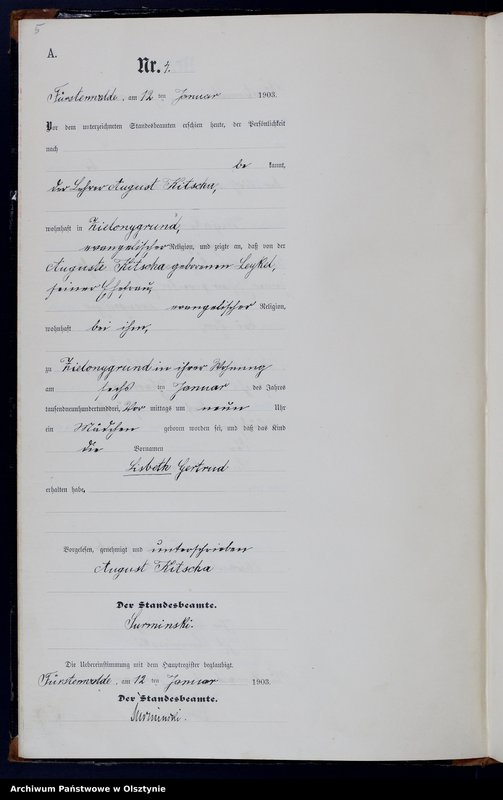 5
A.
Nr. 4.
Fürstenwalde, am 12 ten Januar 1903.
Vor dem unterzeichneten Standesbeamten erschien heute, der Persönlichkeit
nach
be kannt,
der Lehrer August Kitscha,
wohnhaft in Zielonygrund,
evangelischer Religion, und zeigte an, daß von der
Auguste Kitscha geborenen Leyka,
seiner Ehefrau,
evangelischer Religion,
wohnhaft bei ihm,
zu Zielonygrund in ihrer Wohnung
am sechs ten Januar des Jahres
tausendneunhundertunddrei, Vor mittags um neun Uhr
ein Mädchen geboren worden sei, und daß das Kind
die Vornamen
Lisbeth Gertrud
erhalten habe.
Vorgelesen, genehmigt und unterschrieben
August Kitscha
Der Standesbeamte.
Surminski.
Die Uebereinstimmung mit dem Hauptregister beglaubigt.
Fürstenwalde, am 12 ten Januar 1903
Der Standesbeamte.
Surminski.
Archiwum Państwowe w Olsztynie